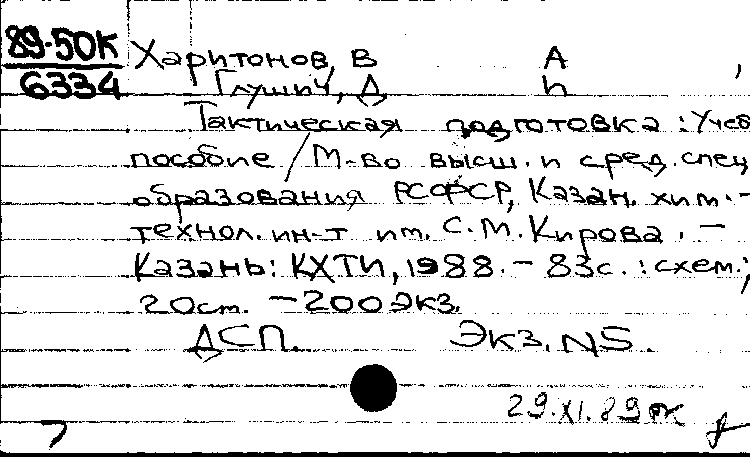 89-50К
6334
Харитонов, В А
Глушич, Д
Тактическая подготовка : Учеб
пособие / М-во высш. и сред. спец
образования РСФСР, Казан. хим.-
технол. ин-т им. С. М. Кирова. -
Казань : КХТИ, 1988. - 83с. : схем.;
20ст. - 200 экз.
ДСП. Экз. NS.
29.XI.89